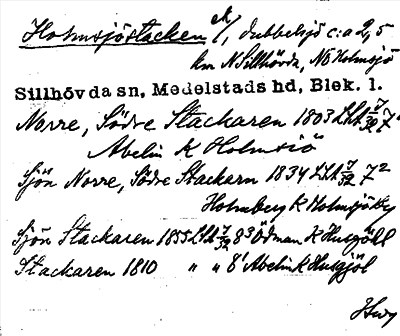 Holmsjöstacken ek/, dubbelsjö c:a 2,5
km N Sillhövda, NO Holmsjö
Sillhövda sn, Medelstads hd, Blek. l.
Norre, Södre Stackaren 1803 LLA 7/32 7²
Abelin K Holmsiö
Sjön Norre, Södre Stackarn 1834 LLA 7/32 7²
Holmberg K Holmsjöby
Sjön Stackaren 1855 LLA 7/32 8³ Ödman K Husgöhl
Stackaren 1810 " " 8¹ Abelin K Husgjöl